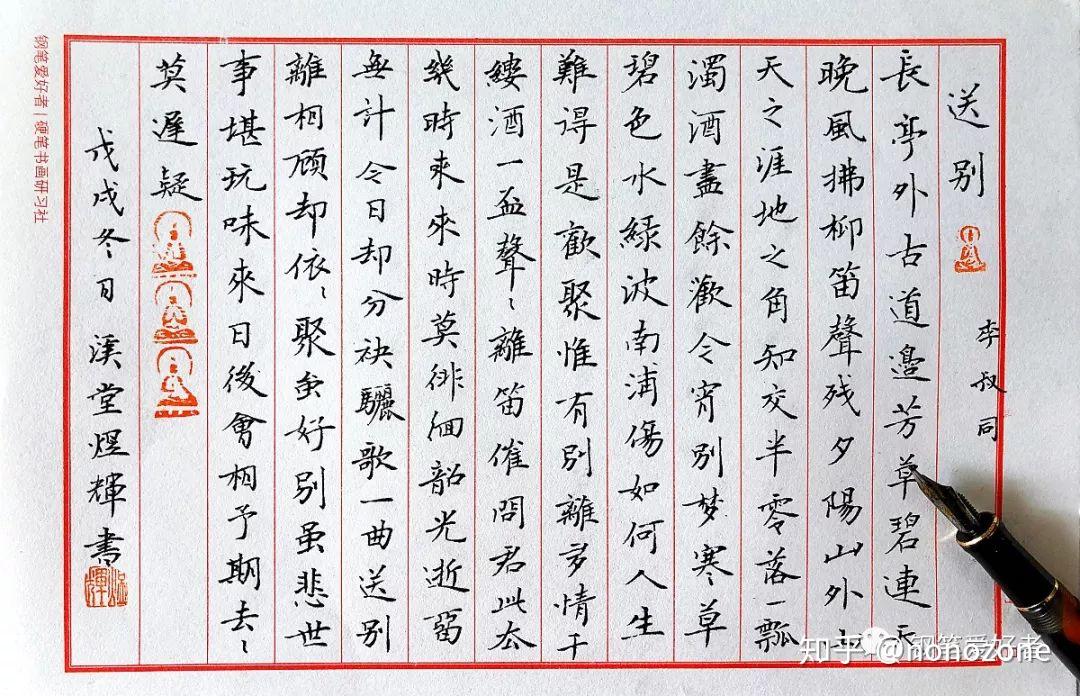 送别
李叔同
長亭外古道邊芳草碧連天
晚風拂柳笛聲残夕陽山外山
天之涯地之角知交半零落一瓢
濁酒盡餘歡今宵别梦寒草
碧色水綠波南浦傷如何人生
難得是歡聚惟有别離多情千
縷酒一盃聲〻離笛催問君此去
幾時來來時莫徘徊韶光逝留
無計今日却分袂驪歌一曲送别
離相顾却依〻聚虽好别虽悲世
事堪玩味來日後會相予期去〻
莫遲疑
戊戌冬日 溪堂煜輝書
钢笔爱好者 | 硬笔书画研习社
知乎 @nonozone
钢笔爱好者